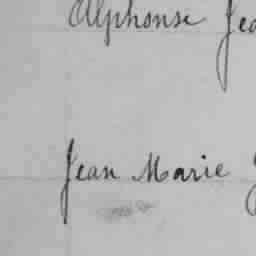 Alphonse Jea
Jean Marie